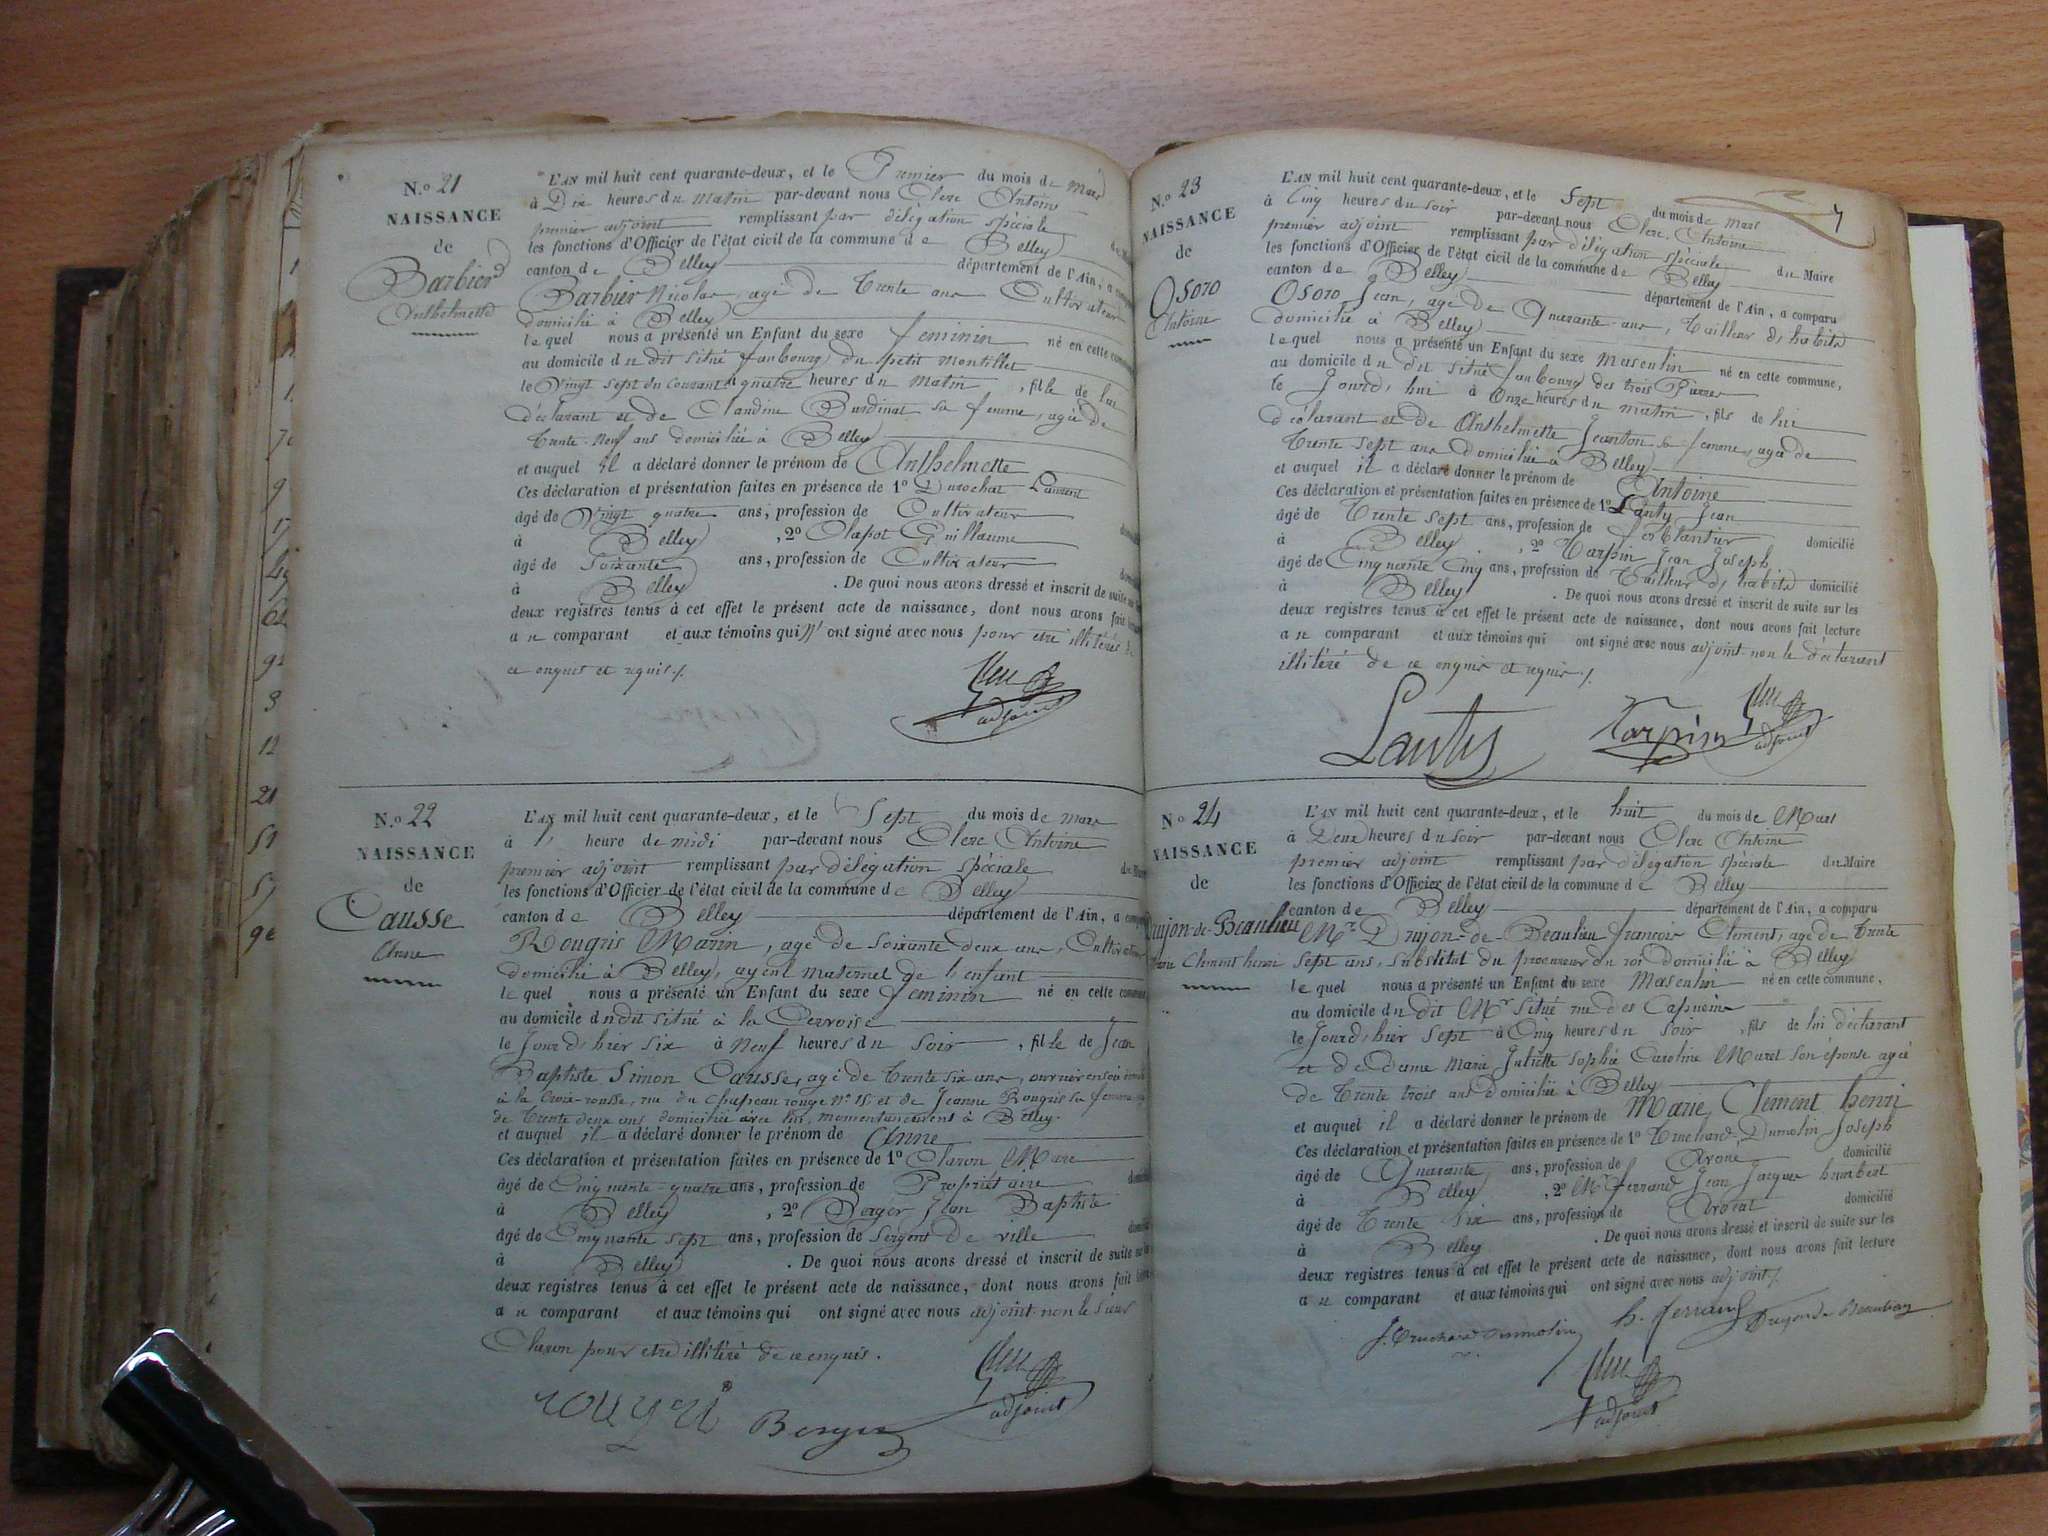 N.° 21
NAISSANCE
de
Barbier
Anthelmette
L'AN mil huit cent quarante-deux, et le Premier du mois de Mars
à Dix heures du Matin par-devant nous Clerc Antoine
premier adjoint remplissant par délégation spéciale
les fonctions d'Officier de l'état civil de la commune de Belley
canton de Belley département de l'Ain, a
Barbier Nicolas, agé de Trente ans Cultivateur
domicilié à Belley
lequel nous a présenté un Enfant du sexe feminin né en cette
au domicile du dit situé faubourg du petit montillet
le Vingt sept du Courant à quatre heures du Matin, fille de lui
déclarant et de Claudine Burdinat sa femme, agée de
Trente-Neuf ans domiciliée à Belley
et auquel il a déclaré donner le prénom de Anthelmette
Ces déclaration et présentation faites en présence de 1° Durochat Laurent
âgé de Vingt quatre ans, profession de Cultivateur
à Belley, 2° Clapot Guillaume
âgé de Soixante ans, profession de Cultivateur
à Belley. De quoi nous avons dressé et inscrit de suite
deux registres tenus à cet effet le présent acte de naissance, dont nous avons fait
au comparant et aux témoins qui n'ont signé avec nous pour etre illitérés de
ce enquis et requis ./.
adjoint
N.° 22
NAISSANCE
de
Causse
Anne
L'AN mil huit cent quarante-deux, et le Sept du mois de mars
à 1 heure de midi par-devant nous Clerc Antoine
premier adjoint remplissant par délégation spéciale du
les fonctions d'Officier de l'état civil de la commune de Belley
canton de Belley département de l'Ain, a
Rougris Marin, agé de soixante deux ans, Cultivateur
domicilié à Belley, ayeul maternel de l'enfant
lequel nous a présenté un Enfant du sexe feminin né en cette commune
au domicile du dit situé à la Cervoise
le Jourd'hier six à Neuf heures du Soir, fille de Jean
Baptiste Simon Causse, agé de Trente six ans, ouvrier en soie
à la Croix-rousse, rue du Chapeau rouge N° 15 et de Jeanne Rougris sa femme
de Trente deux ans domiciliée avec lui, momentanément à Belley.
et auquel il a déclaré donner le prénom de Anne
Ces déclaration et présentation faites en présence de 1° Claron Marc
âgé de Cinquante-quatre ans, profession de Propriétaire
à Belley, 2° Berger Jean Baptiste
âgé de Cinquante sept ans, profession de Sergent de ville
à Belley. De quoi nous avons dressé et inscrit de suite
deux registres tenus à cet effet le présent acte de naissance, dont nous avons fait
au comparant et aux témoins qui ont signé avec nous adjoint non le Sieur
Claron pour etre illitéré de ce enquis.
adjoint
rougri Berger
7
N.° 23
NAISSANCE
de
Osoro
Antoine
L'AN mil huit cent quarante-deux, et le Sept du mois de mars
à Cinq heures du soir par-devant nous Clerc Antoine
premier adjoint remplissant par délégation spéciale du Maire
les fonctions d'Officier de l'état civil de la commune de Belley
canton de Belley département de l'Ain, a comparu
Osoro Jean, agé de Quarante ans, Tailleur d'habits
domicilié à Belley
lequel nous a présenté un Enfant du sexe masculin né en cette commune,
au domicile du dit situé faubourg des trois Pierres
le Jourd'hui à Onze heures du matin, fils de lui
déclarant et de Anthelmette Jeanton sa femme, agée de
Trente sept ans domiciliée à Belley
et auquel il a déclaré donner le prénom de Antoine
Ces déclaration et présentation faites en présence de 1° Lanty Jean
âgé de Trente sept ans, profession de ferblantier domicilié
à Belley, 2° Tarpin Jean Joseph
âgé de Cinquante Cinq ans, profession de Tailleur d'habits domicilié
à Belley. De quoi nous avons dressé et inscrit de suite sur les
deux registres tenus à cet effet le présent acte de naissance, dont nous avons fait lecture
au comparant et aux témoins qui ont signé avec nous adjoint non le déclarant
illitéré de ce enquis et requis ./.
Lanty Tarpin adjoint
N° 24
NAISSANCE
de
Drujon-de-Beaulieu
Marie Clement henri
L'AN mil huit cent quarante-deux, et le huit du mois de Mars
à Deux heures du soir par-devant nous Clerc Antoine
premier adjoint remplissant par délégation spéciale du Maire
les fonctions d'Officier de l'état civil de la commune de Belley
canton de Belley département de l'Ain, a comparu
Mr. Drujon-de-Beaulieu françois Clement, agé de Trente
sept ans, substitut du procureur du roi domicilié à Belley
lequel nous a présenté un Enfant du sexe Masculin né en cette commune,
au domicile du dit Mr situé rue des Capucins
le Jourd'hier sept à Cinq heures du soir, fils de lui déclarant
et de dame Marie Juliette Sophie Caroline Muret son épouse agée
de Trente trois ans domiciliée à Belley
et auquel il a déclaré donner le prénom de Marie, Clement henri
Ces déclaration et présentation faites en présence de 1° Truchard-Dumolin Joseph
âgé de Quarante ans, profession de Avoué domicilié
à Belley, 2° Mr ferrand Jean Jacques humbert
âgé de Trente Six ans, profession de Avocat domicilié
à Belley. De quoi nous avons dressé et inscrit de suite sur les
deux registres tenus à cet effet le présent acte de naissance, dont nous avons fait lecture
au comparant et aux témoins qui ont signé avec nous adjoint ./.
J. Truchard Dumolin h. ferrand Drujon de Beaulieu
adjoint